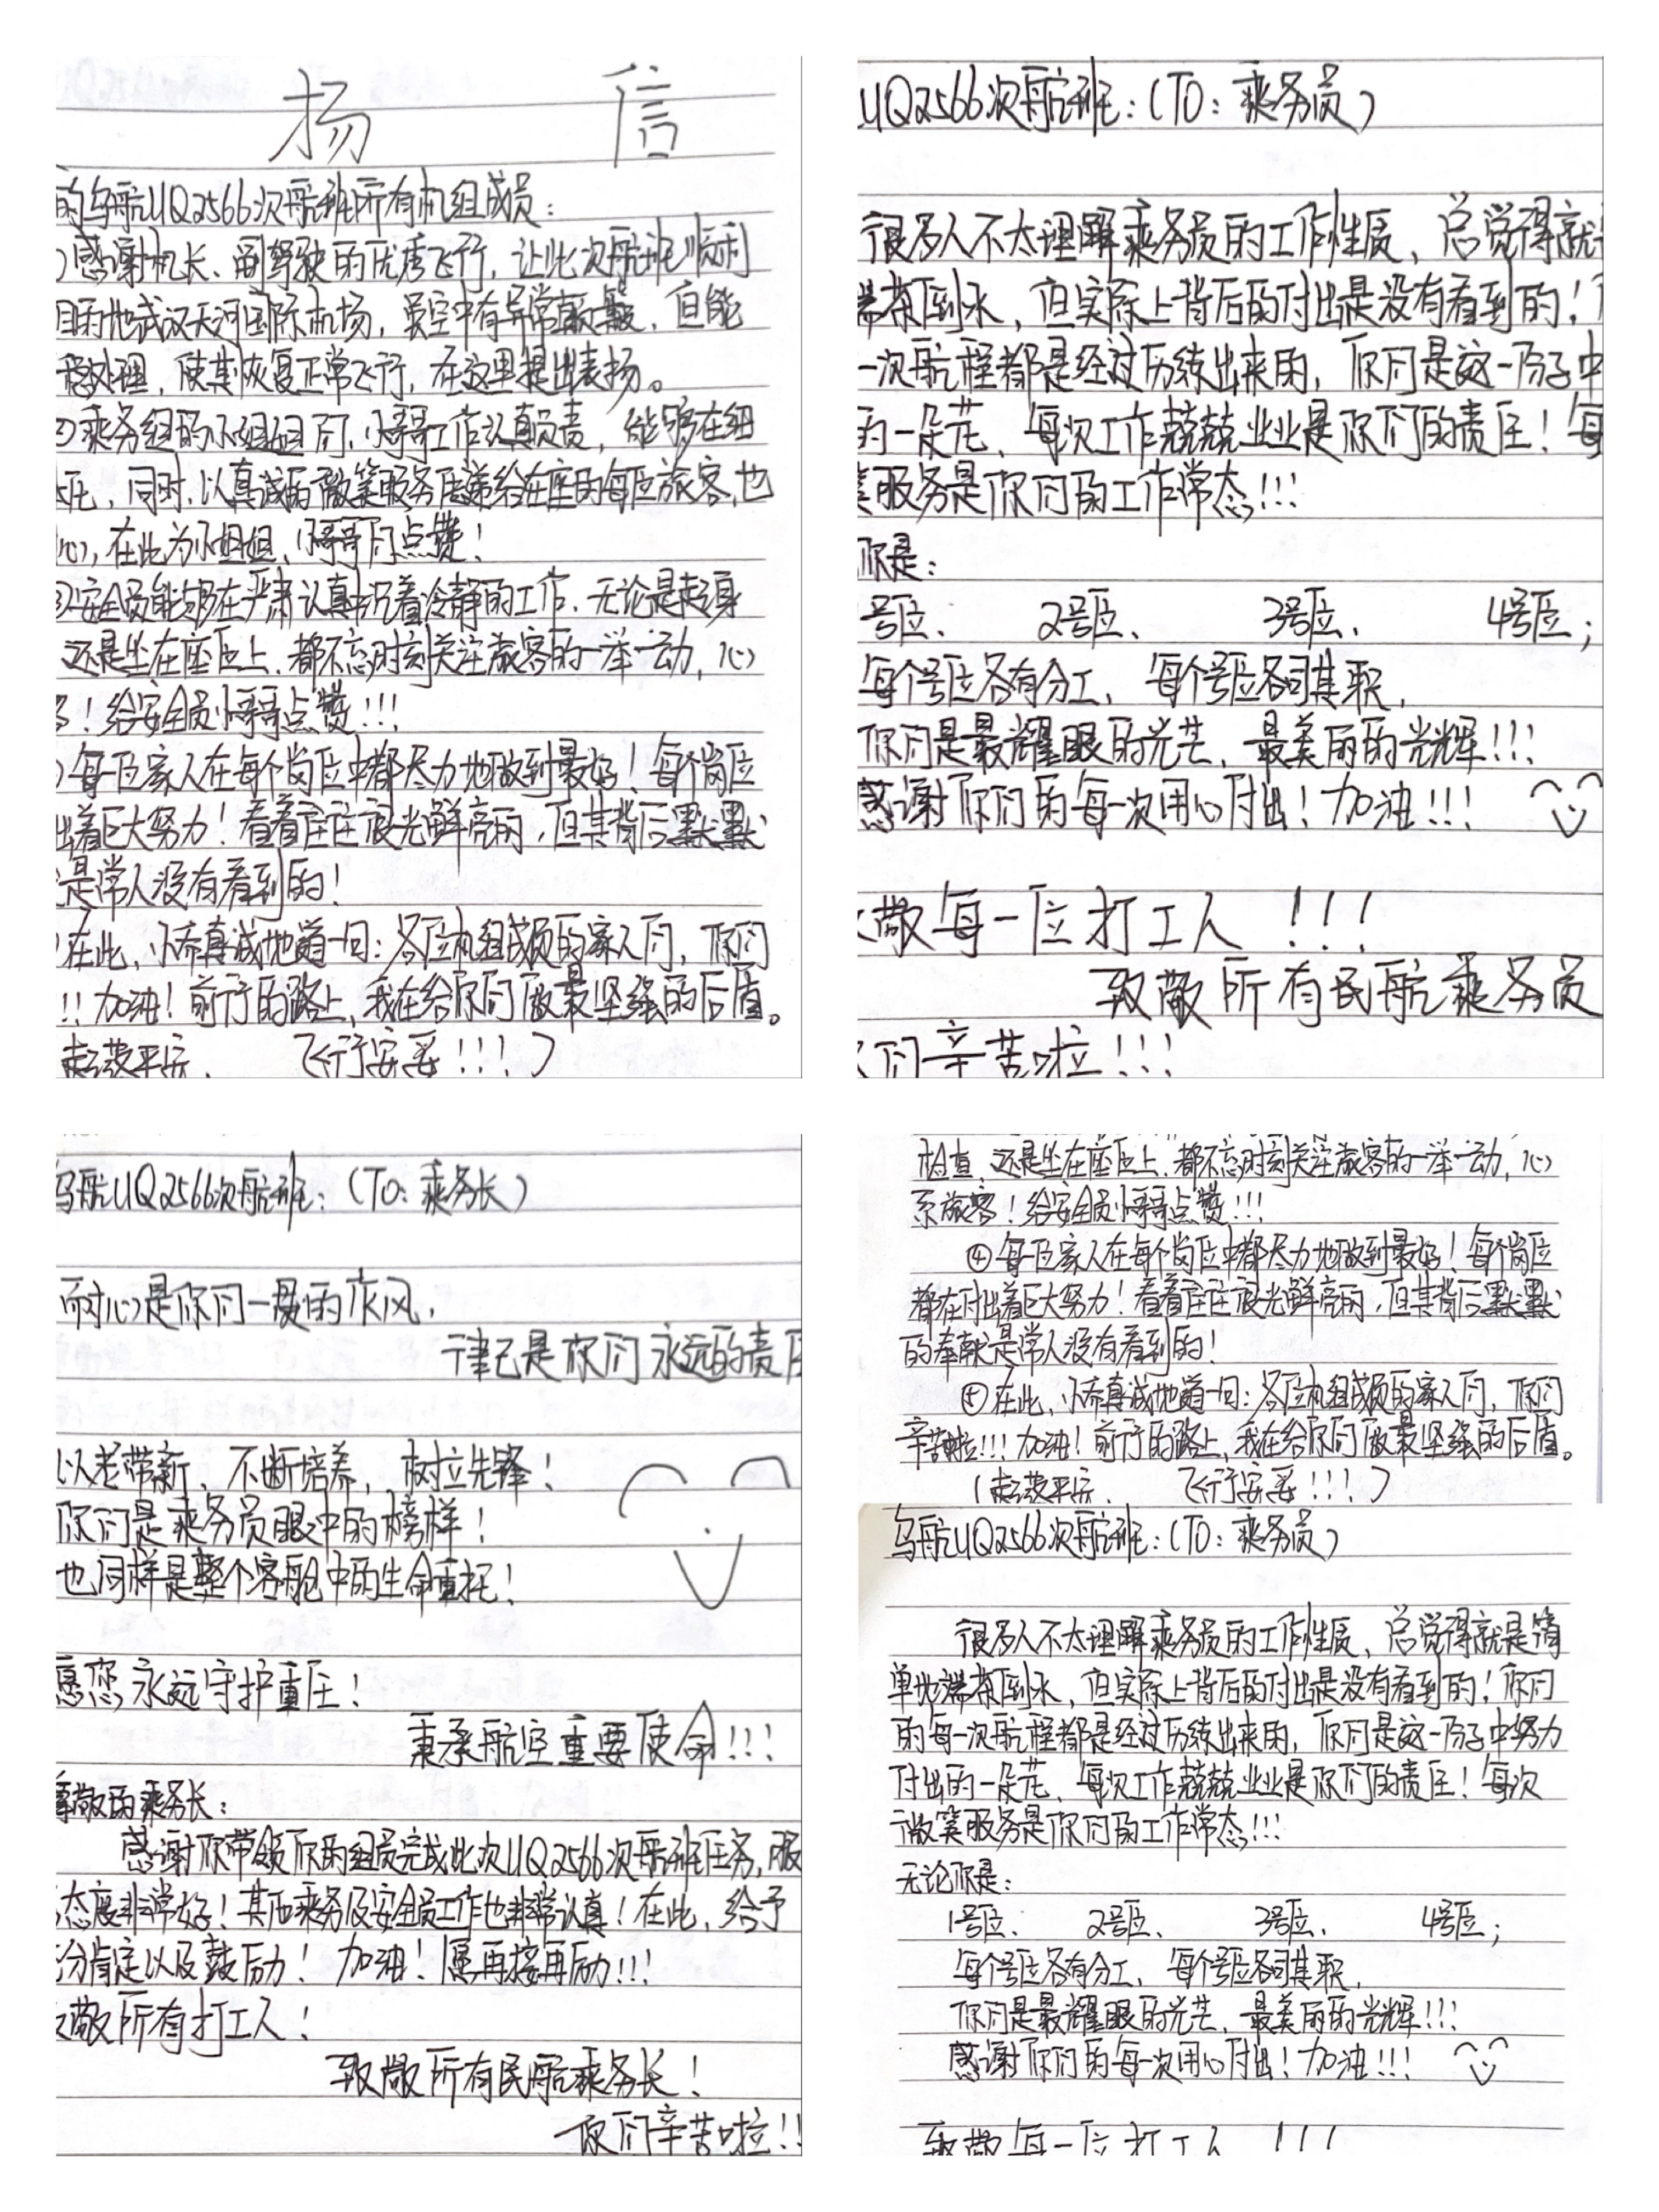 扬 信
的乌航UQ2566次航班所有机组成员：
感谢机长、副驾驶的优秀飞行，让此次航班顺利
目的地武汉天河国际机场，虽空中有异常颠簸，但能
稳处理，使其恢复正常飞行，在这里提出表扬。
②乘务组的小姐姐们、小哥哥工作认真负责，能够在细
同时，以真诚的微笑服务传递给在座的每位旅客，也
心，在此为小姐姐、小哥哥们点赞！
③安全员能够在严肃认真中沉着冷静的工作，无论是起身
还是坐在座位上，都不忘时刻关注旅客的一举一动，心
！给安全员小哥哥点赞！！！
每一位家人在每个岗位中都尽力地做到最好！每个岗位
出着巨大努力！看着往往很光鲜亮丽，但其背后默默
是常人没有看到的！
在此，小乔真诚地道一句：各位机组成员的家人们，你们
！！加油！前行的路上，我在给你们做最坚强的后盾。
起落平安、 飞行安妥！！！）
UQ2566次航班：（TO：乘务员）
很多人不太理解乘务员的工作性质，总觉得就
端茶倒水，但实际上背后的付出是没有看到的！
一次航程都是经过历练出来的，你们是这一份子中
的一朵花，每次工作兢兢业业是你们的责任！每
笑服务是你们的工作常态！！！
你是：
号位、 2号位、 3号位、 4号位；
每个号位各有分工，每个号位各司其职，
你们是最耀眼的光芒，最美丽的光辉！！！
感谢你们的每一次用心付出！加油！！！
敬每一位打工人！！！
致敬所有民航乘务员
们辛苦啦！！！
乌航UQ2566次航班：（TO：乘务长）
耐心是你们一贯的作风，
律己是你们永远的责任
以老带新，不断培养，树立先锋！
你们是乘务员眼中的榜样！
也同样是整个客舱中的生命重托！
愿您永远守护重任！
秉承航空重要使命！！！
尊敬的乘务长：
感谢你带领你的组员完成此次UQ2566次航班任务，服
态度非常好！其他乘务及安全员工作也非常认真！在此，给予
分肯定以及鼓励！加油！愿再接再励！！！
敬所有打工人！
致敬所有民航乘务长！
你们辛苦啦！！
检查、还是坐在座位上，都不忘时刻关注旅客的一举一动，心
系旅客！给安全员小哥哥点赞！！！
④每一位家人在每个岗位中都尽力地做到最好！每个岗位
都在付出着巨大努力！看着往往很光鲜亮丽，但其背后默默
的奉献是常人没有看到的！
⑤在此，小乔真诚地道一句：各位机组成员的家人们，你们
辛苦啦！！！加油！前行的路上，我在给你们做最坚强的后盾。
（起落平安、 飞行安妥！！！）
乌航UQ2566次航班：（TO：乘务员）
很多人不太理解乘务员的工作性质，总觉得就是简
单地端茶倒水，但实际上背后的付出是没有看到的！你们
的每一次航程都是经过历练出来的，你们是这一份子中努力
付出的一朵花，每次工作兢兢业业是你们的责任！每次
微笑服务是你们的工作常态！！！
无论你是：
1号位、 2号位、 3号位、 4号位；
每个号位各有分工，每个号位各司其职，
你们是最耀眼的光芒，最美丽的光辉！！！
感谢你们的每一次用心付出！加油！！！
致敬每一位打工人！！！